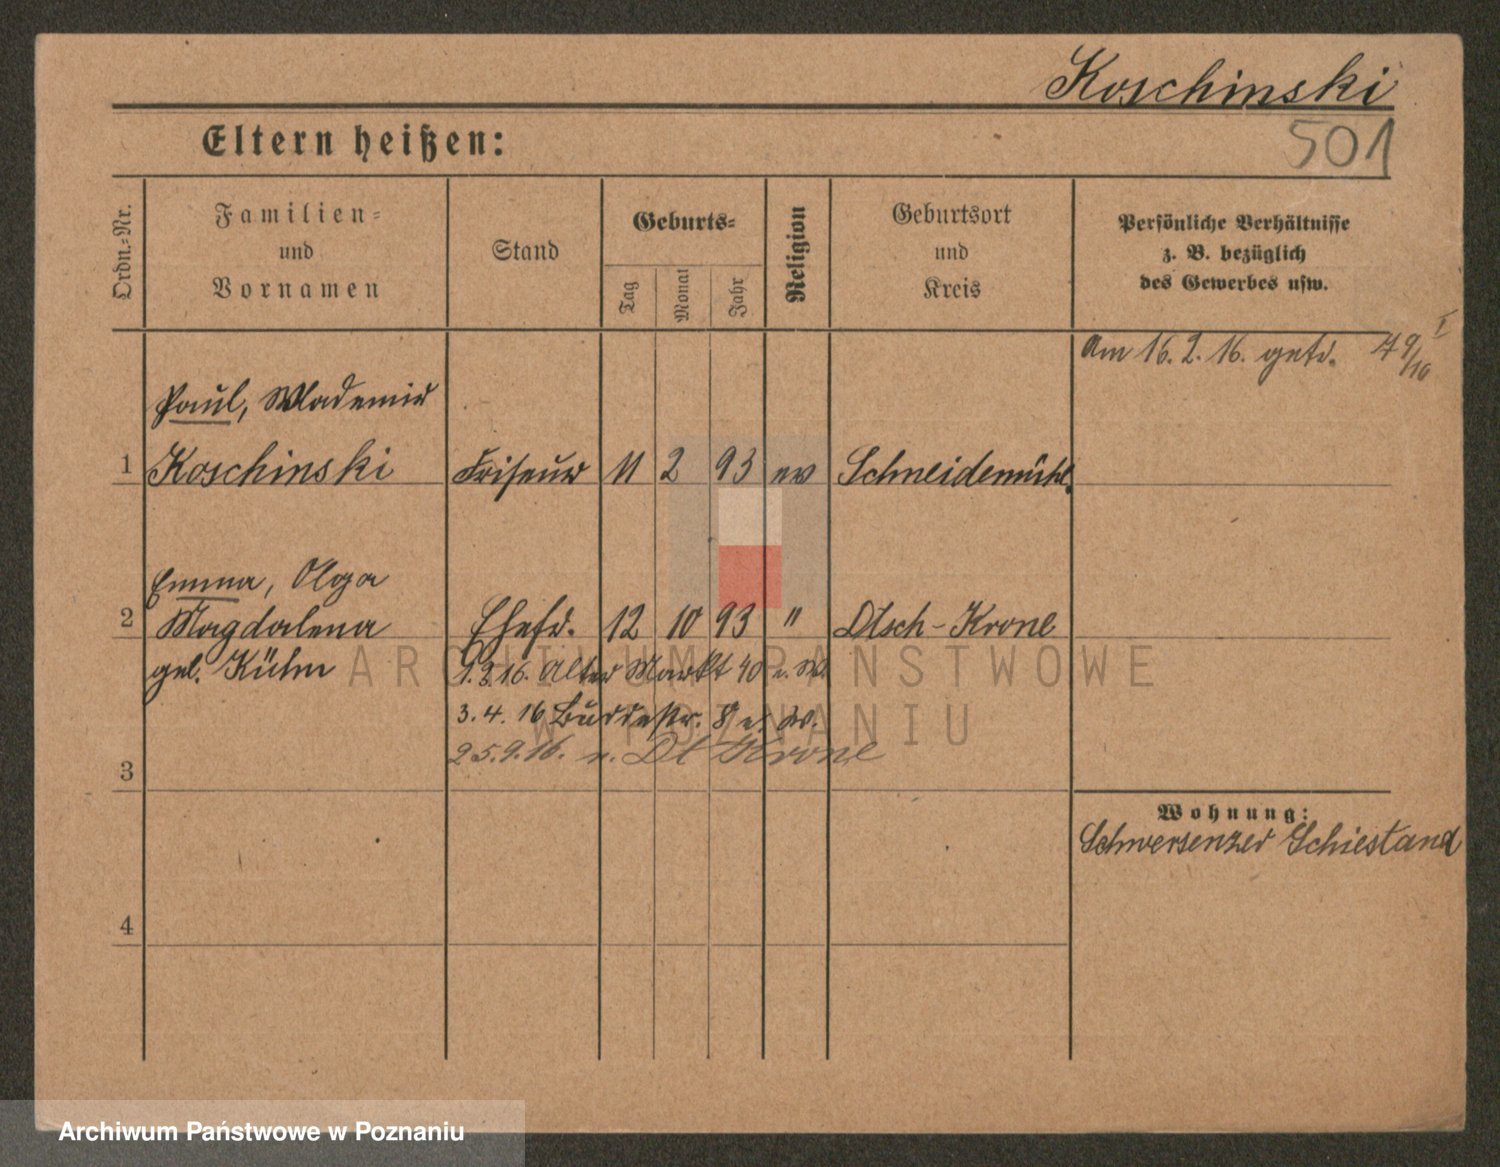 Koschinski
501
Eltern heißen:
Ordn.-Nr.
Familien-
und
Vornamen
Stand
Geburts-
Tag
Monat
Jahr
Religion
Geburtsort
und
Kreis
Persönliche Verhältnisse
z. B. bezüglich
des Gewerbes usw.
Am 16. 2. 16. getr. 49/16 I
Paul, Wlademir
1 Koschinski Friseur 11 2 93 ev Schneidemühl.
Emma, Olga
2 Magdalena Ehefr. 12 10 93 " Dtsch-Krone
geb. Kühn 1.3.16. Alter Markt 40
3. 4. 16 Buddestr. 8
25.9.16. n. Dt Krone
3
Wohnung:
Schwersenzer Schiestand
4
ARCHIWUM PAŃSTWOWE
W POZNANIU
Archiwum Państwowe w Poznaniu